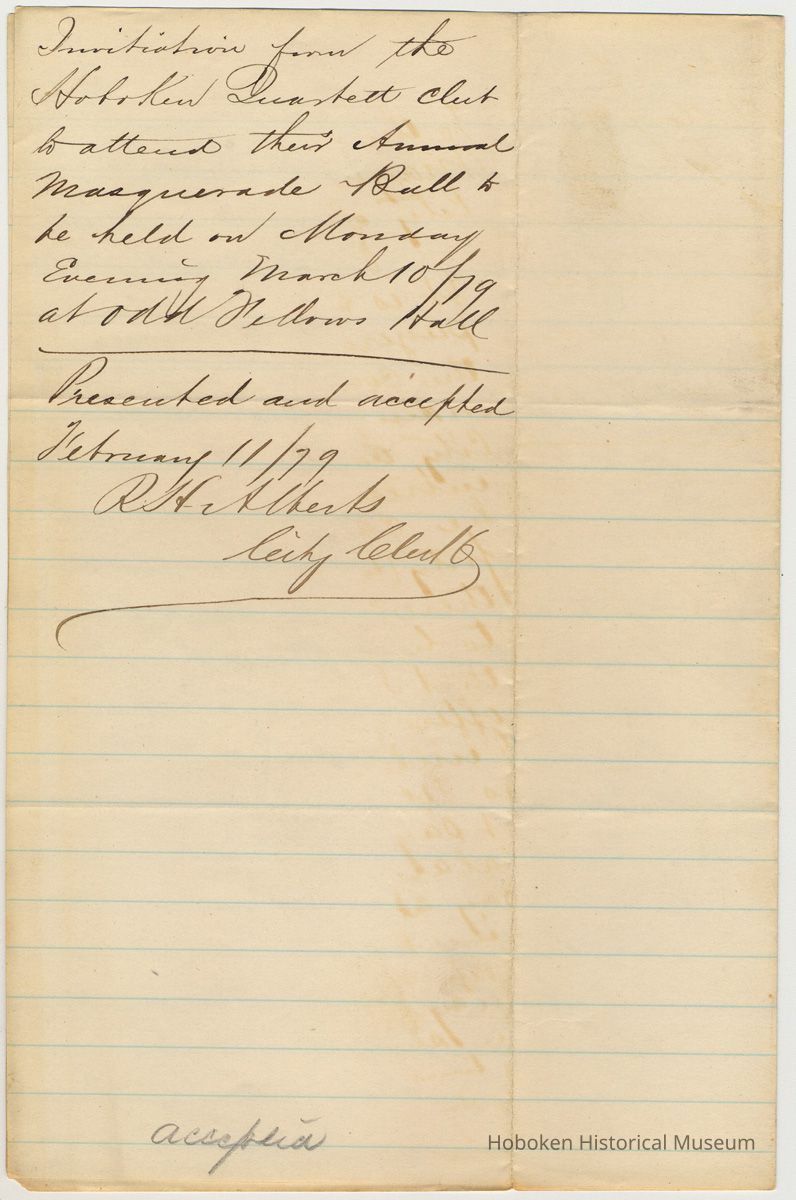 Invitiation from the
Hoboken Quartett Club
to attend their Annual
Masquerade Ball to
be held on Monday
Evening March 10/79
at Odd Fellows Hall
Presented and accepted
February 11/79
R. H. Alberts
City Clerk
accepted
Hoboken Historical Museum